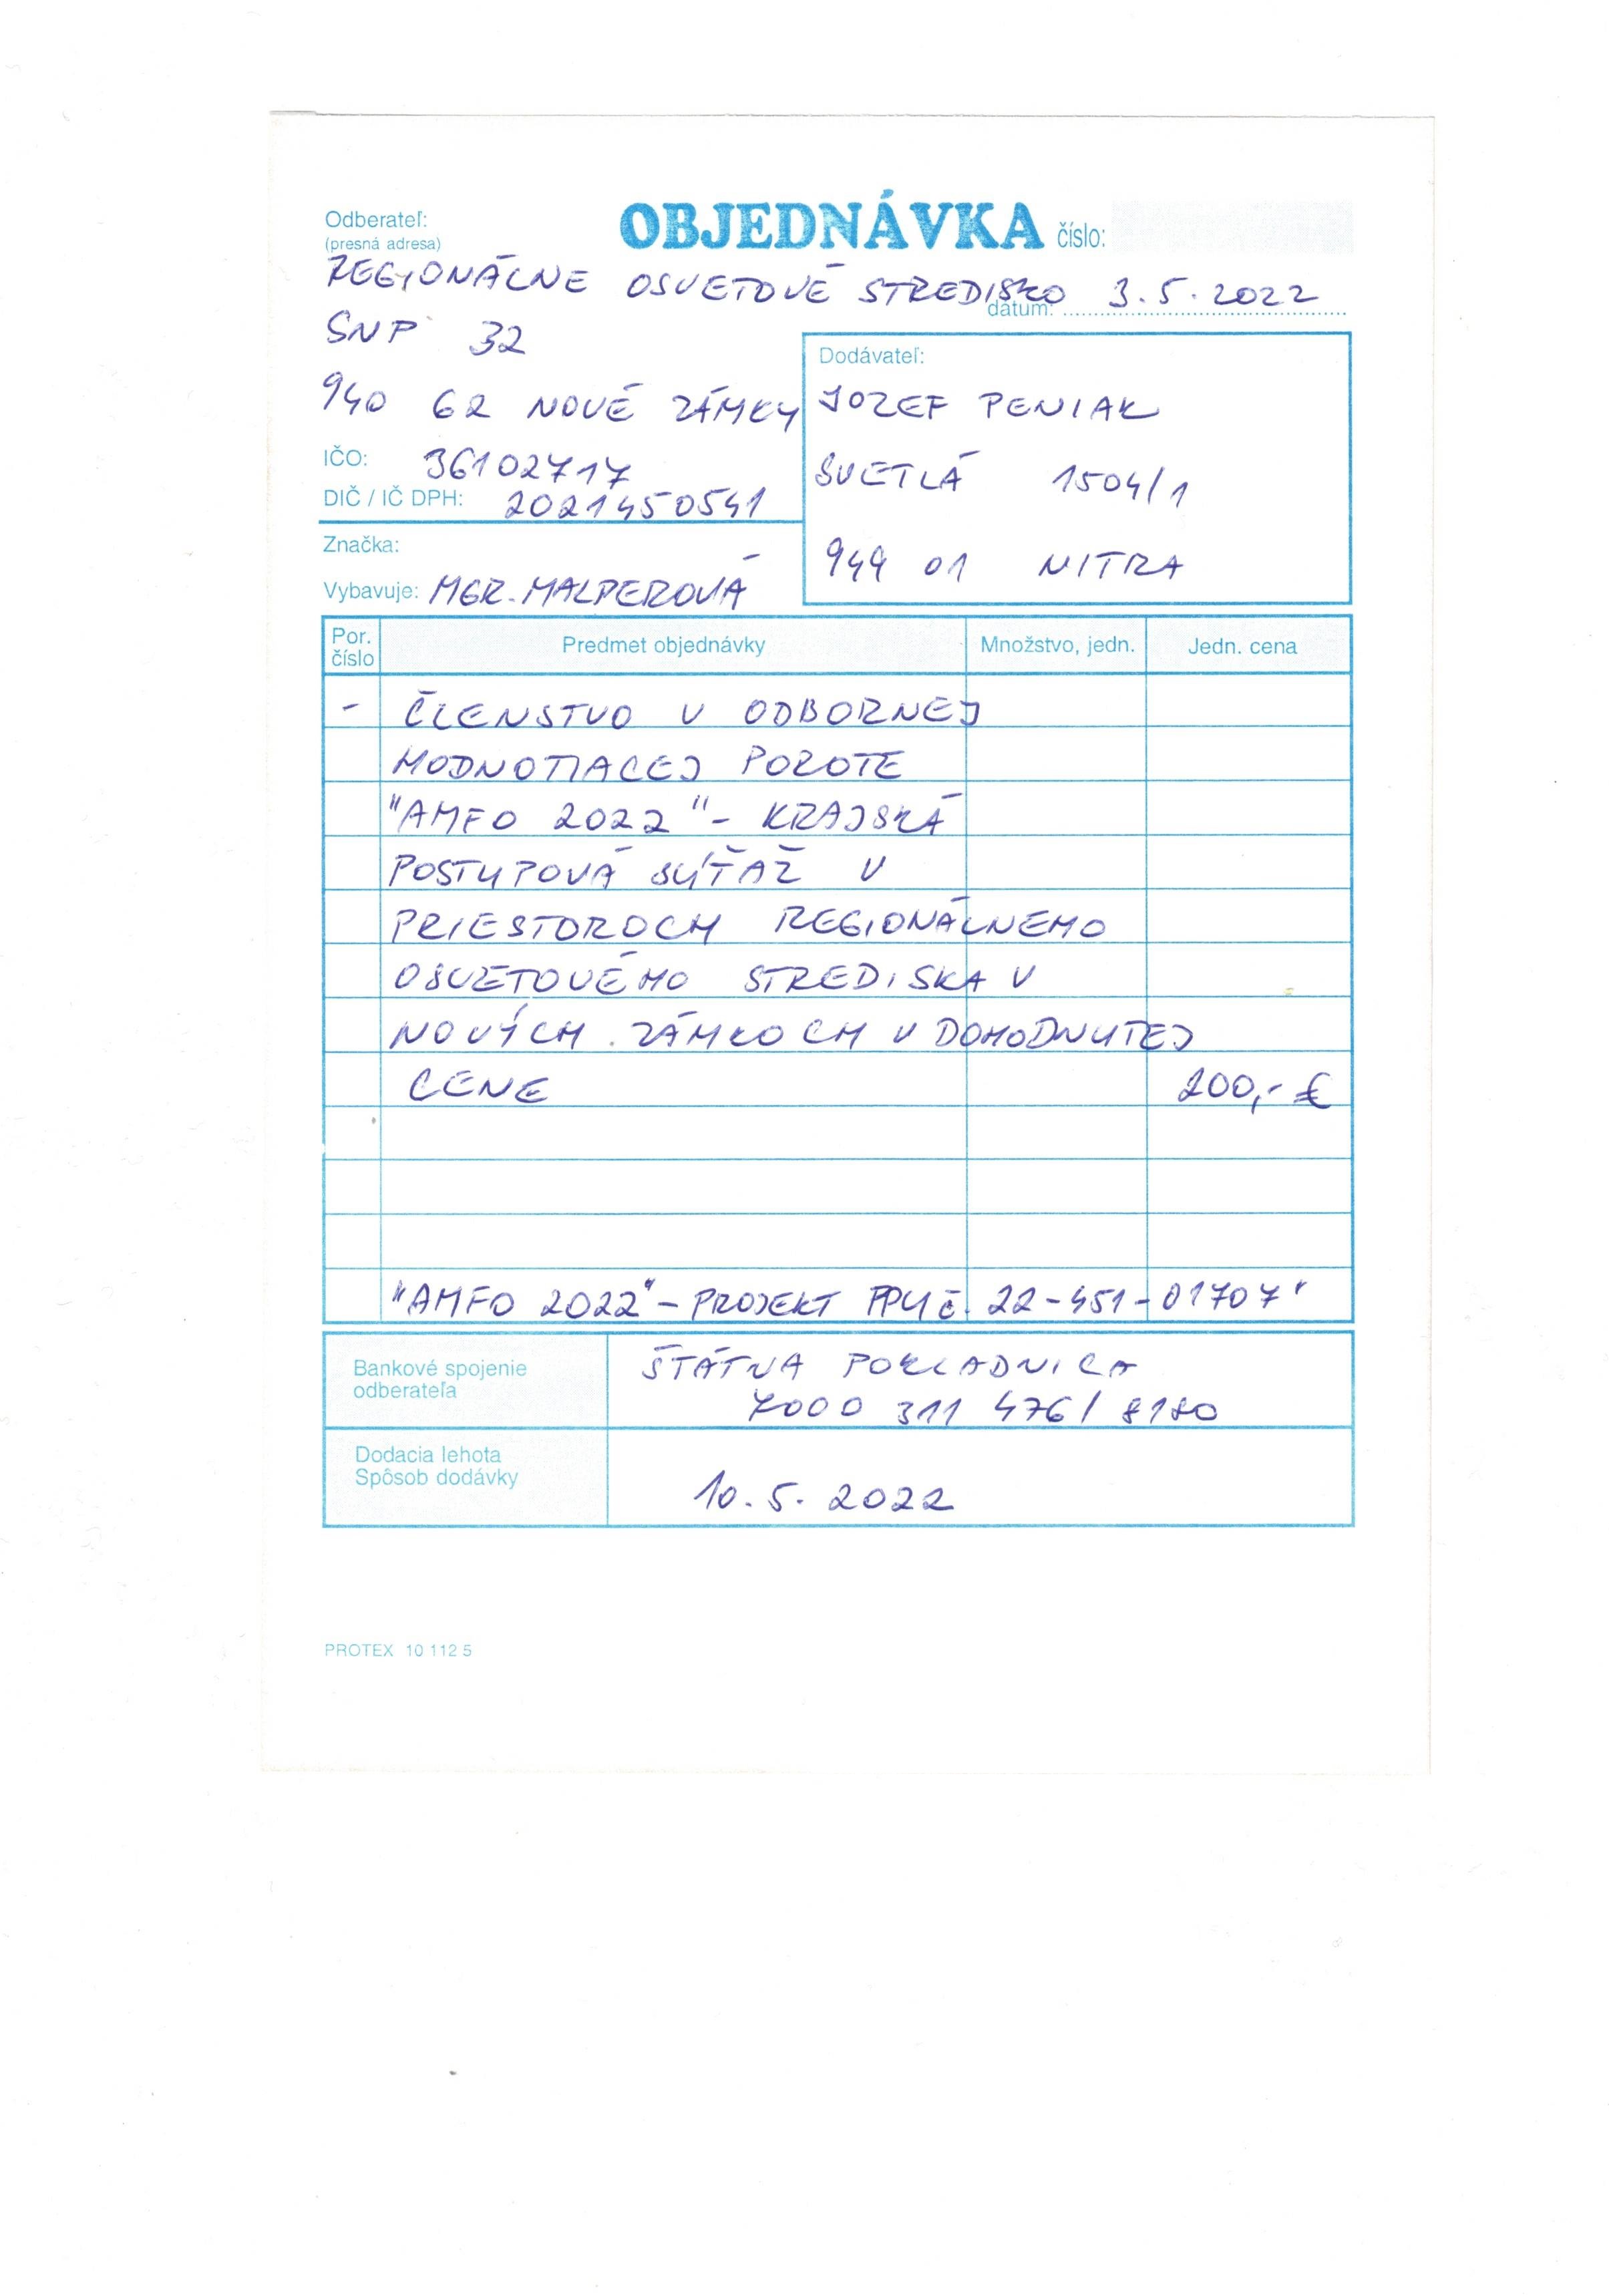 Odberateľ:
(presná adresa)
OBJEDNÁVKA číslo:
REGIONÁLNE OSVETOVÉ STREDISKO
dátum: 3.5.2022
SNP 32
940 62 NOVÉ ZÁMKY
IČO: 36102717
DIČ / IČ DPH: 2021450541
Značka:
Vybavuje: MGR. MALPEROVÁ
Dodávateľ:
JOZEF PENIAK
SVETLÁ 1504/1
949 01 NITRA
Por. číslo Predmet objednávky Množstvo, jedn. Jedn. cena
- ČLENSTVO V ODBORNEJ
HODNOTIACEJ POROTE
"AMFO 2022" - KRAJSKÁ
POSTUPOVÁ SÚŤAŽ V
PRIESTOROCH REGIONÁLNEHO
OSVETOVÉHO STREDISKA V
NOVÝCH ZÁMKOCH V DOHODNUTEJ
CENE 200,- €
"AMFO 2022" - PROJEKT FPU č. 22-451-01707"
Bankové spojenie
odberateľa
ŠTÁTNA POKLADNICA
7000 311 476/8180
Dodacia lehota
Spôsob dodávky
10.5.2022
PROTEX 10 112 5